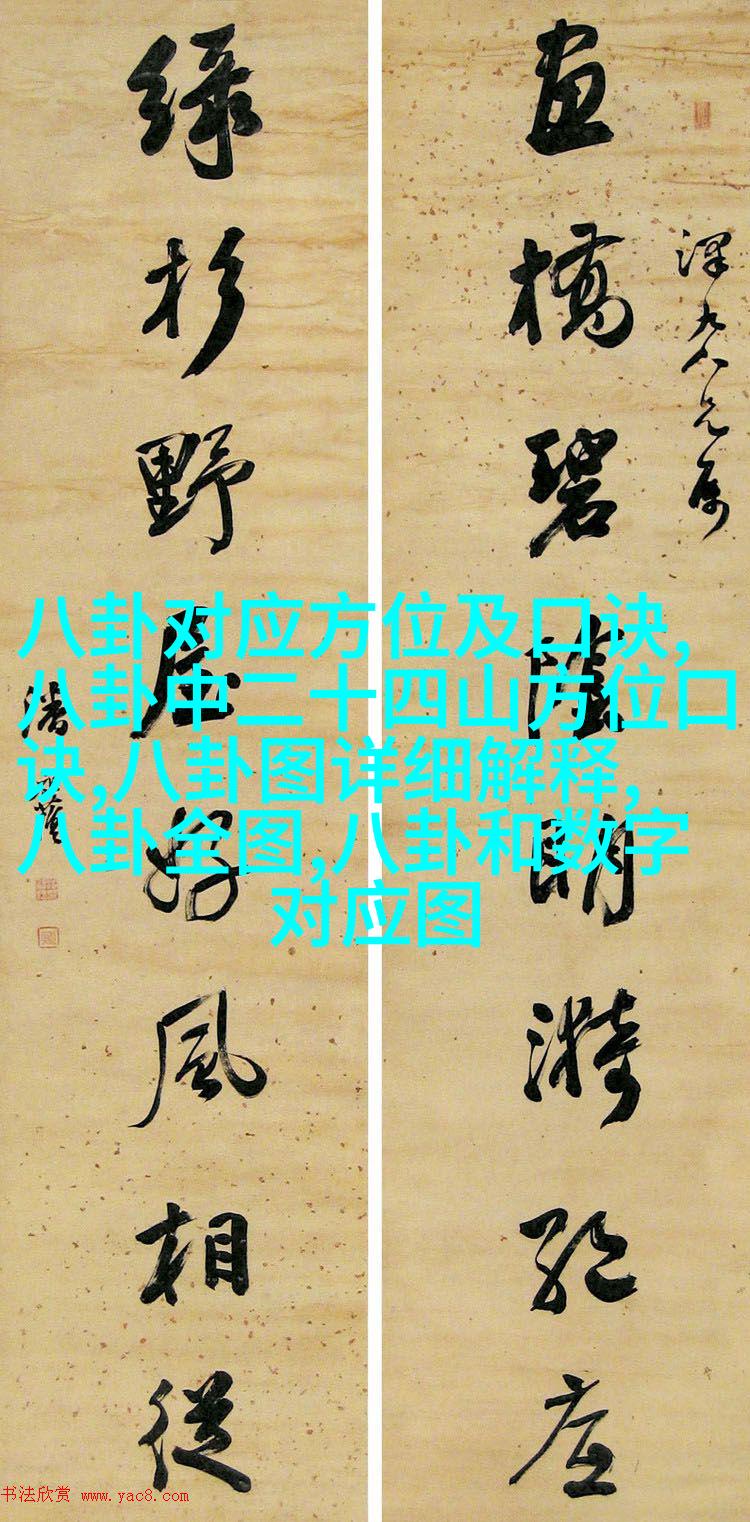 畫橋碧陰明漪絕底
澤九大兄屬
綠杉野屋好風相從
潘
八卦对应方位及口诀,
八卦中二十四山方位口
诀,八卦图详细解释,
八卦全图,八卦和数字
对应图
书法欣赏 www.yac8.com